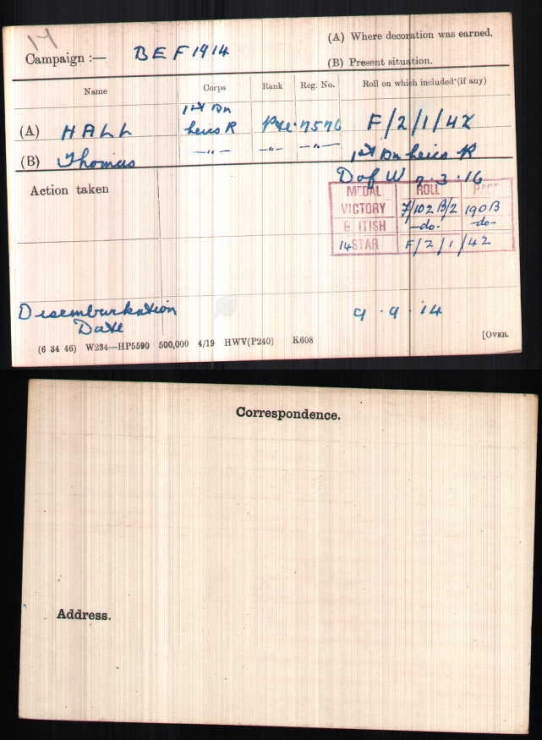 14
(A) Where decoration was earned.
Campaign :— BEF 1914
(B) Present situation.
Name Corps Rank Reg. No. Roll on which included (if any)
1st Bn
(A) HALL Leics R Pte 7576 F/2/1/42
(B) Thomas —„— —„— —„— 1st Bn Leics R
Action taken D of W 9.3.16
MEDAL ROLL PAGE
VICTORY F/102 B/2 190B
BRITISH —do— —do—
14 STAR F/2/1/42
Disembarkation 9.9.14
Date
(6 34 46) W234—HP5590 500,000 4/19 HWV(P240) K608 [OVER.
Correspondence.
Address.